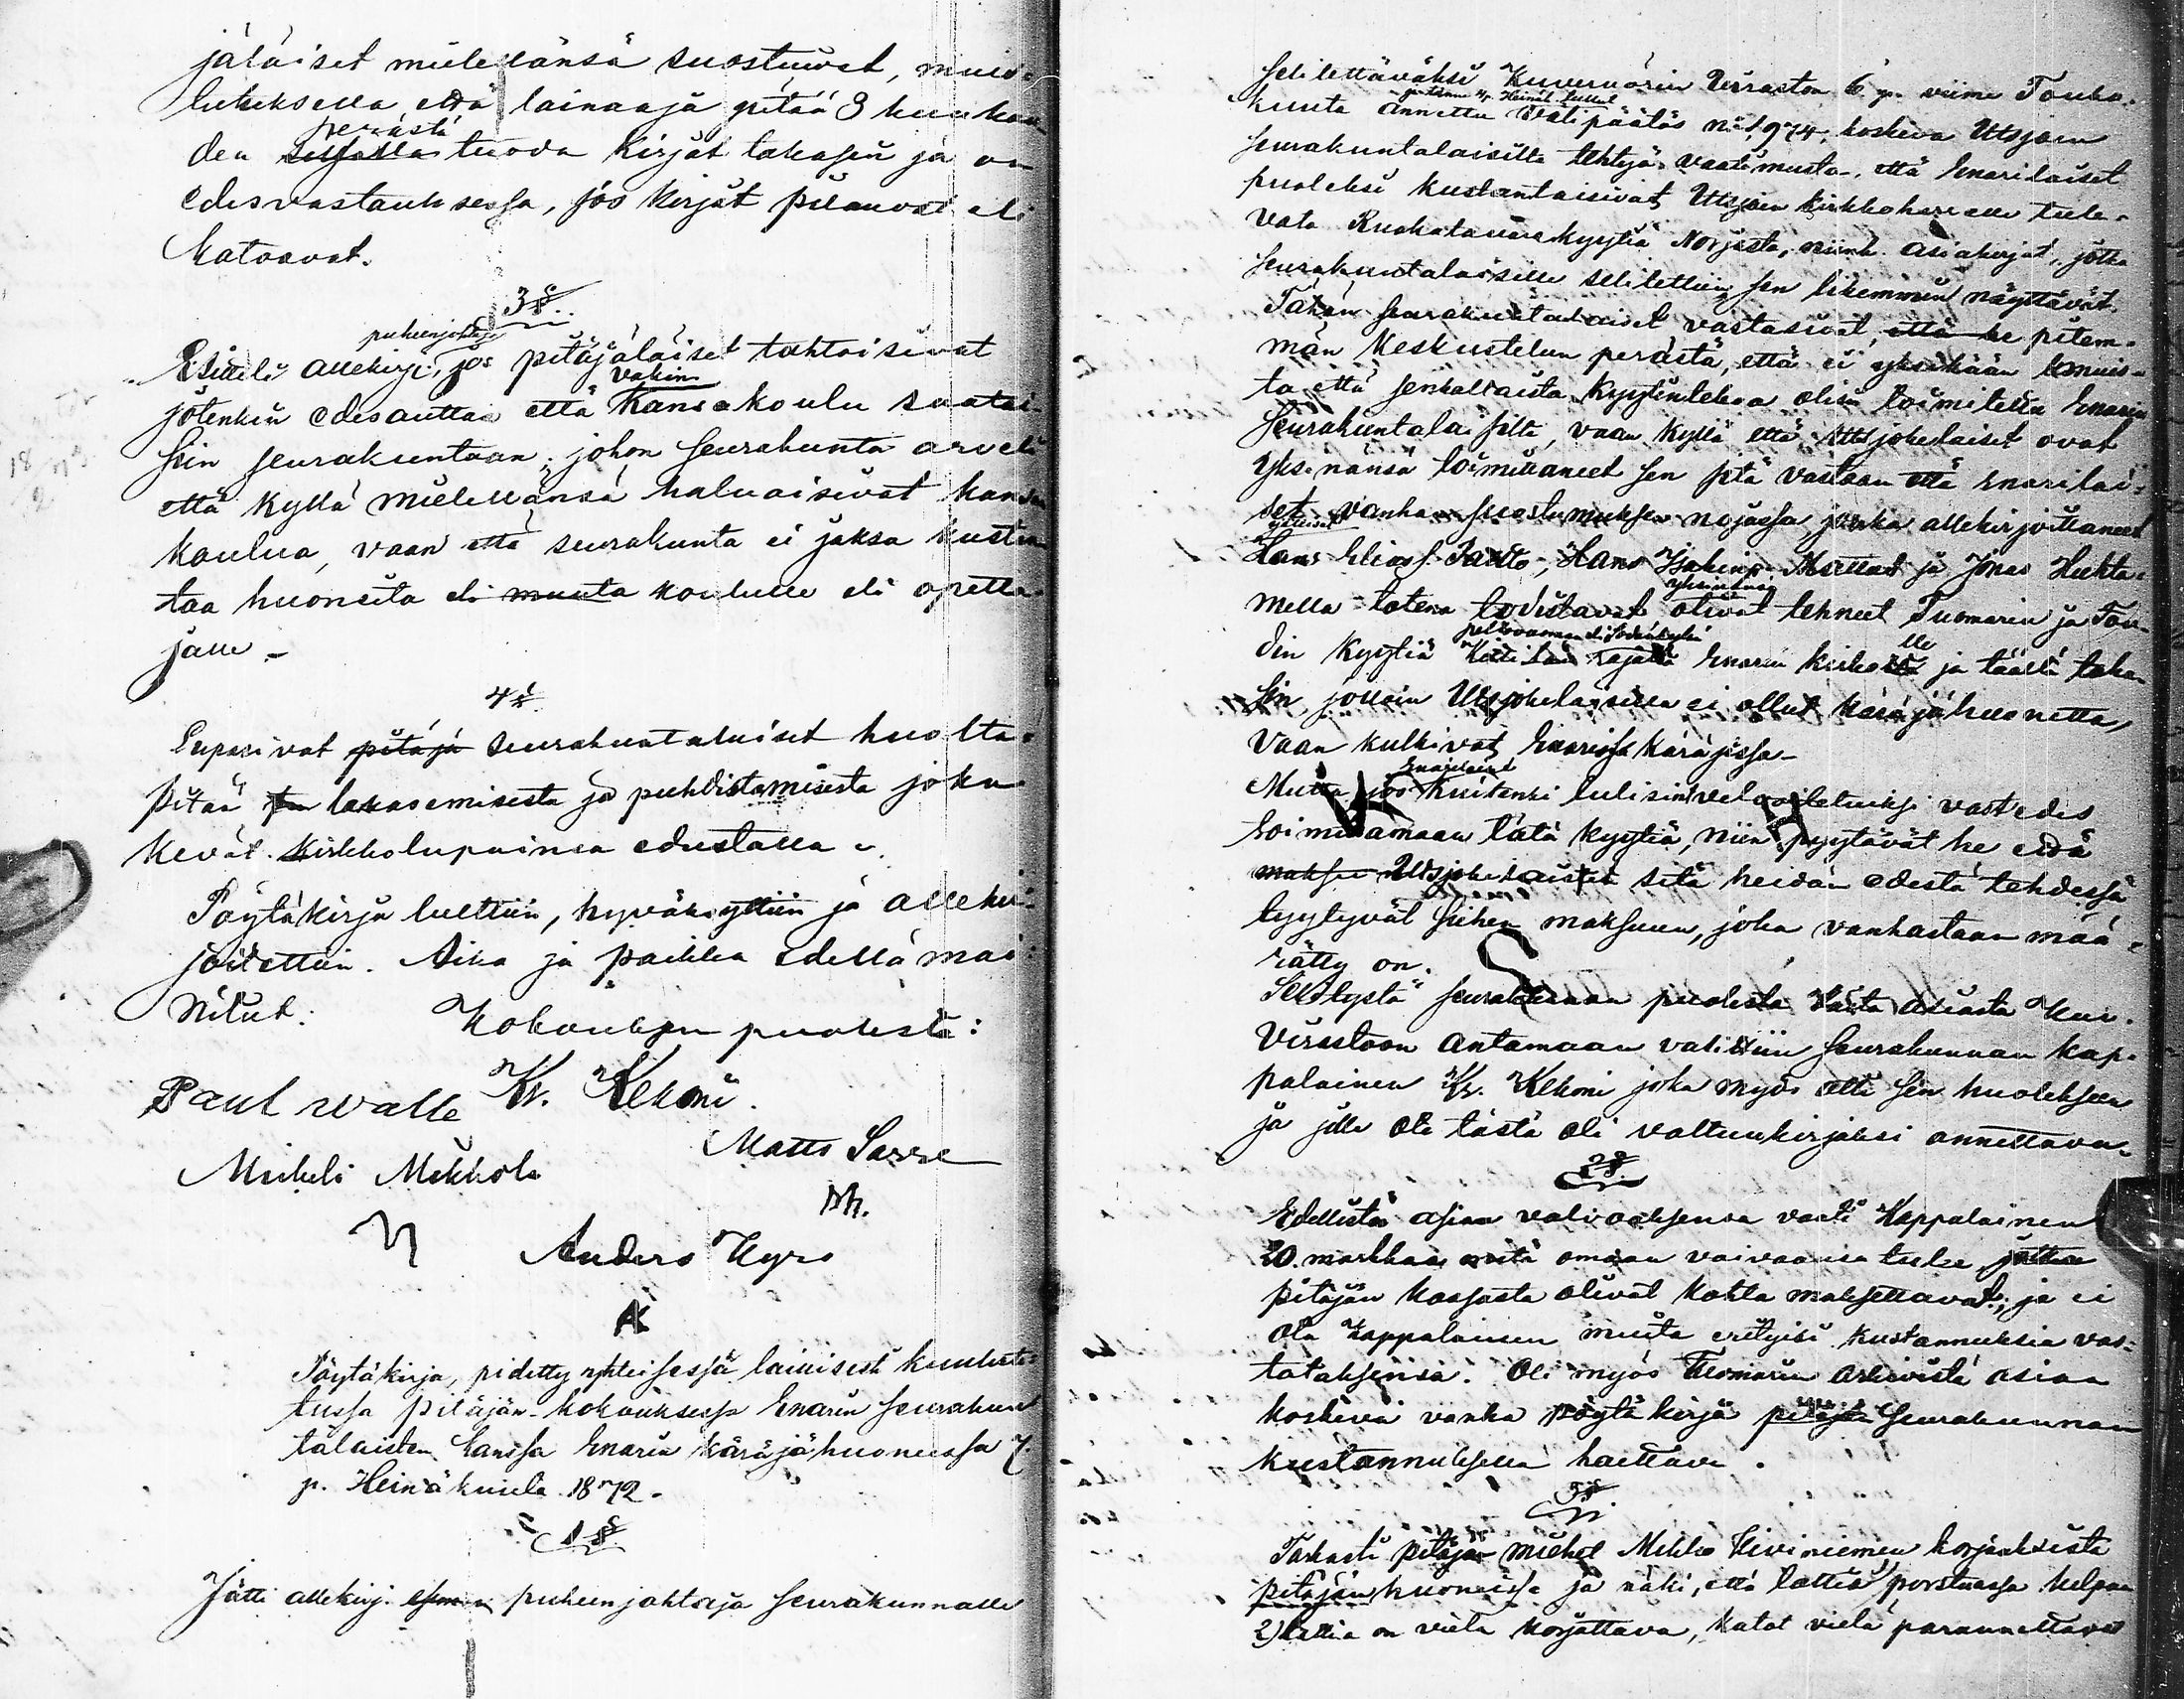 jäläiset mielellänsä suostuwat, muis-
tutuksella että lainaaja pitää 3 kuukau-
perästä
den tuoda kirjat takasin ja on
edesvastauksessa, jos kirjat pilauvat eli
katoavat.
3 §
puheenjohtaja
Esitteli allekirj. jos pitäjäläiset tahtoisivat
vakin.
jotenkin edesauttaa että Kansakoulu saatai-
siin seurakuntaan; johon seurakunta arveli
että kyllä mielellänsä haluaisivat kansa
koulua, vaan että seurakunta ei jaksa kustan
taa huoneita eli muuta koululle eli opetta-
jalle -
4 §
Lupasivat pitäjä seurakuntalaiset huolta
pitää lakasemisesta ja puhdistamisesta joka
kevät kirkkolupainsa edustalla
Pöytäkirja luettiin, hyväksyttiin ja allekir-
joitettiin. Aika ja paikka edellä mai-
nitut. Kokouksen puolesta:
Paul Walle K. Kekoni
Matts Sarre
Mikeli Mikkola
Anders Kyrö
Pöytäkirja, pidetty yhteisessä laillisesti kuulute-
tussa pitäjän-kokouksessa Enarin seurakunt
talaisten kanssa Enarin käräjähuoneessa 7
p. Heinäkuuta 1872.
1 §
Jätti allekirj. puheenjohtaja seurakunnalle
selitettäväksi Kuvernörin Virraston 6 p. viime Touko-
kuuta annettu välipäätös No 1974, koskeva Utsjoen
seurakuntalaisilta tehtyjä vaatimusta, että Enarilaiset
puoleksi kustantaisivat Utsjoen kirkkoherralle tule-
vata Ruokatavarakyytiä Norjasta, niink. asiakirjat, jotka
seurakuntalaisille selitettiin sen likemmin näyttävät.
Tähän seurakuntalaiset vastasivat, että he pitem-
män keskustelun perästä, että ei yksikään muis-
ta että senkaltaista kyytintekoa olisi toimitettu Enarin
seurakuntalaisilta, vaan kyllä että Utsjokelaiset ovat
yksinänsä toimittaneet sen sitä vastaan että Enarilai-
set vanhan suostumuksen nojassa, jonka allekirjoittaneet
Hans Elias s. Paltto, Hans ja Jonas Huhta-
mella totena todistavat olivat tehneet Tuomarin ja Fou-
din kyytiä Enarin kirkolle ja täältä taka-
sin jolloin Utsjokelaisilla ei ollut käräjähuonetta,
vaan kulkivat Enarissa käräjissä.
Enarilaiset
Mutta jos kuitenki tulisivat velvoitetuiksi vastedes
toimittamaan tätä kyytiä, niin pyytävät he että
maksu Utsjokelaisten sitä heidän edestä tehdessä
tyytyvät siihen maksuun, joka vanhastaan mää-
rätty on.
Selitystä seurakunnan puolesta tästä asiasta Kuv.
Virastoon antamaan valittiin seurakunnan kap-
palainen K. Kekoni joka myös otti sen huoleksensa
ja jolle ote tästä oli valtuukirjaksi annettava.
2 §
Edellistä asiaa valvoaksensa vaati Kappalainen
20 markkaa omaan vaivaansa jotka
pitäjän kassasta olivat kohta maksettavat, ja ei
ota Kappalainen muita erityisi kustannuksia vas-
tataksensa. Oli myös Tuomarin arkivista asiaa
koskeva vanha pöytäkirja pitäjän seurakunnan
kustannuksella haettava.
3 §
Tarkasti pitäjän miehet Mikko Kiviniemen korjauksista
pitäjän huoneissa ja näki, että lattia porstuassa
2) lattia on vielä korjattava, katot vielä parannettavat